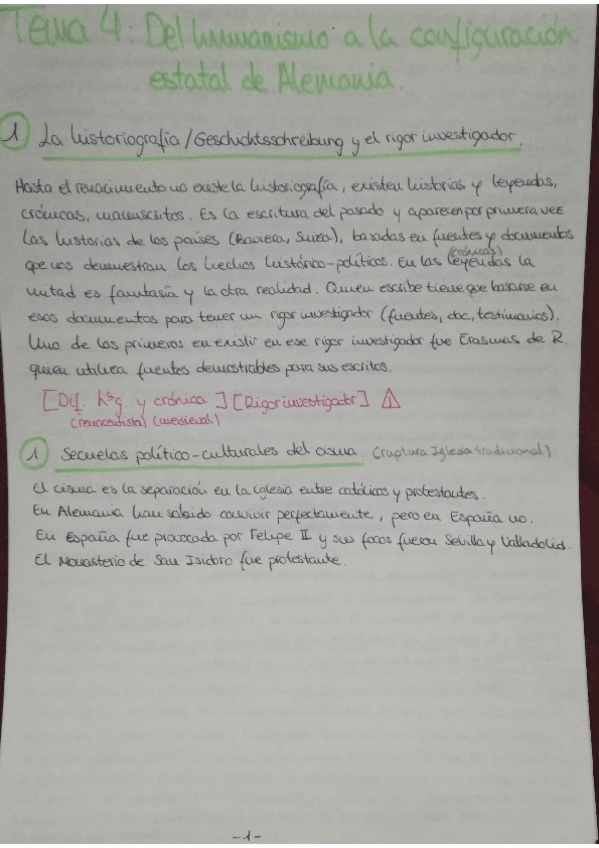 Tema 4: Del humanismo a la configuración
estatal de Alemania.
1 La historiografía/Geschichtsschreibung y el rigor investigador.
Hasta el renacimiento no existe la historiografía, existen historias y leyendas,
crónicas, manuscritos. Es la escritura del pasado y aparecen por primera vez
las historias de los países (Baviera, Suiza), basadas en fuentes y documentos
que nos demuestran los hechos histórico-políticos. En las leyendas (crónicas) la
mitad es fantasía y la otra realidad. Quien escribe tiene que basarse en
esos documentos para tener un rigor investigador (fuentes, doc, testimonios).
Uno de los primeros en existir en ese rigor investigador fue Erasmus de R.
quien utiliza fuentes demostrables para sus escritos.
[Dif. hªg. y crónica] [Rigor investigador] ⚠
(renacentista) (medieval)
1 Secuelas político-culturales del cisma. (ruptura Iglesia tradicional)
El cisma es la separación en la Iglesia entre católicos y protestantes.
En Alemania han sabido convivir perfectamente, pero en España no.
En España fue provocada por Felipe II y sus focos fueron Sevilla y Valladolid.
El Monasterio de San Isidoro fue protestante.
-1-